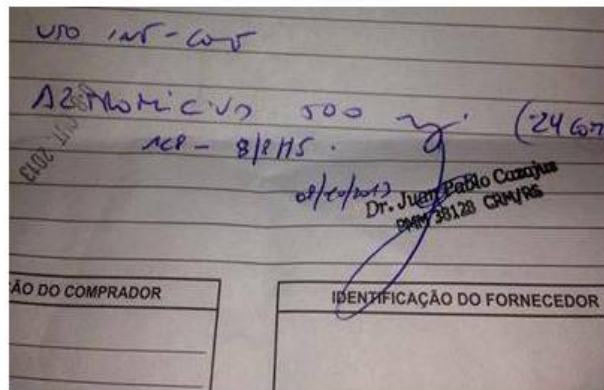 USO INT - CONT
AZITROMICINA 500 mg. (24 COM
1CP - 8/8 HS.
OUT 2013
08/10/2013
Dr. Juan Pablo Cazajus
PMM 38128 CRM/RS
ÃO DO COMPRADOR
IDENTIFICAÇÃO DO FORNECEDOR